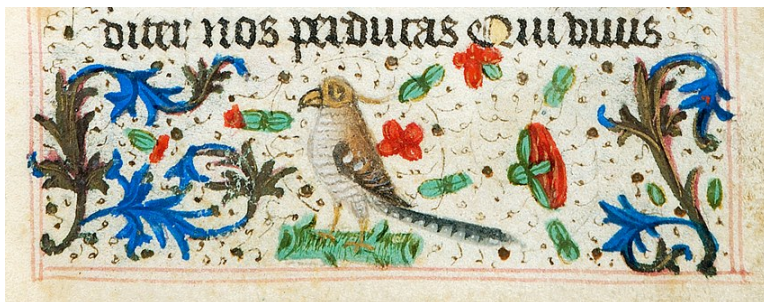 diter nos perducas Qui vivus